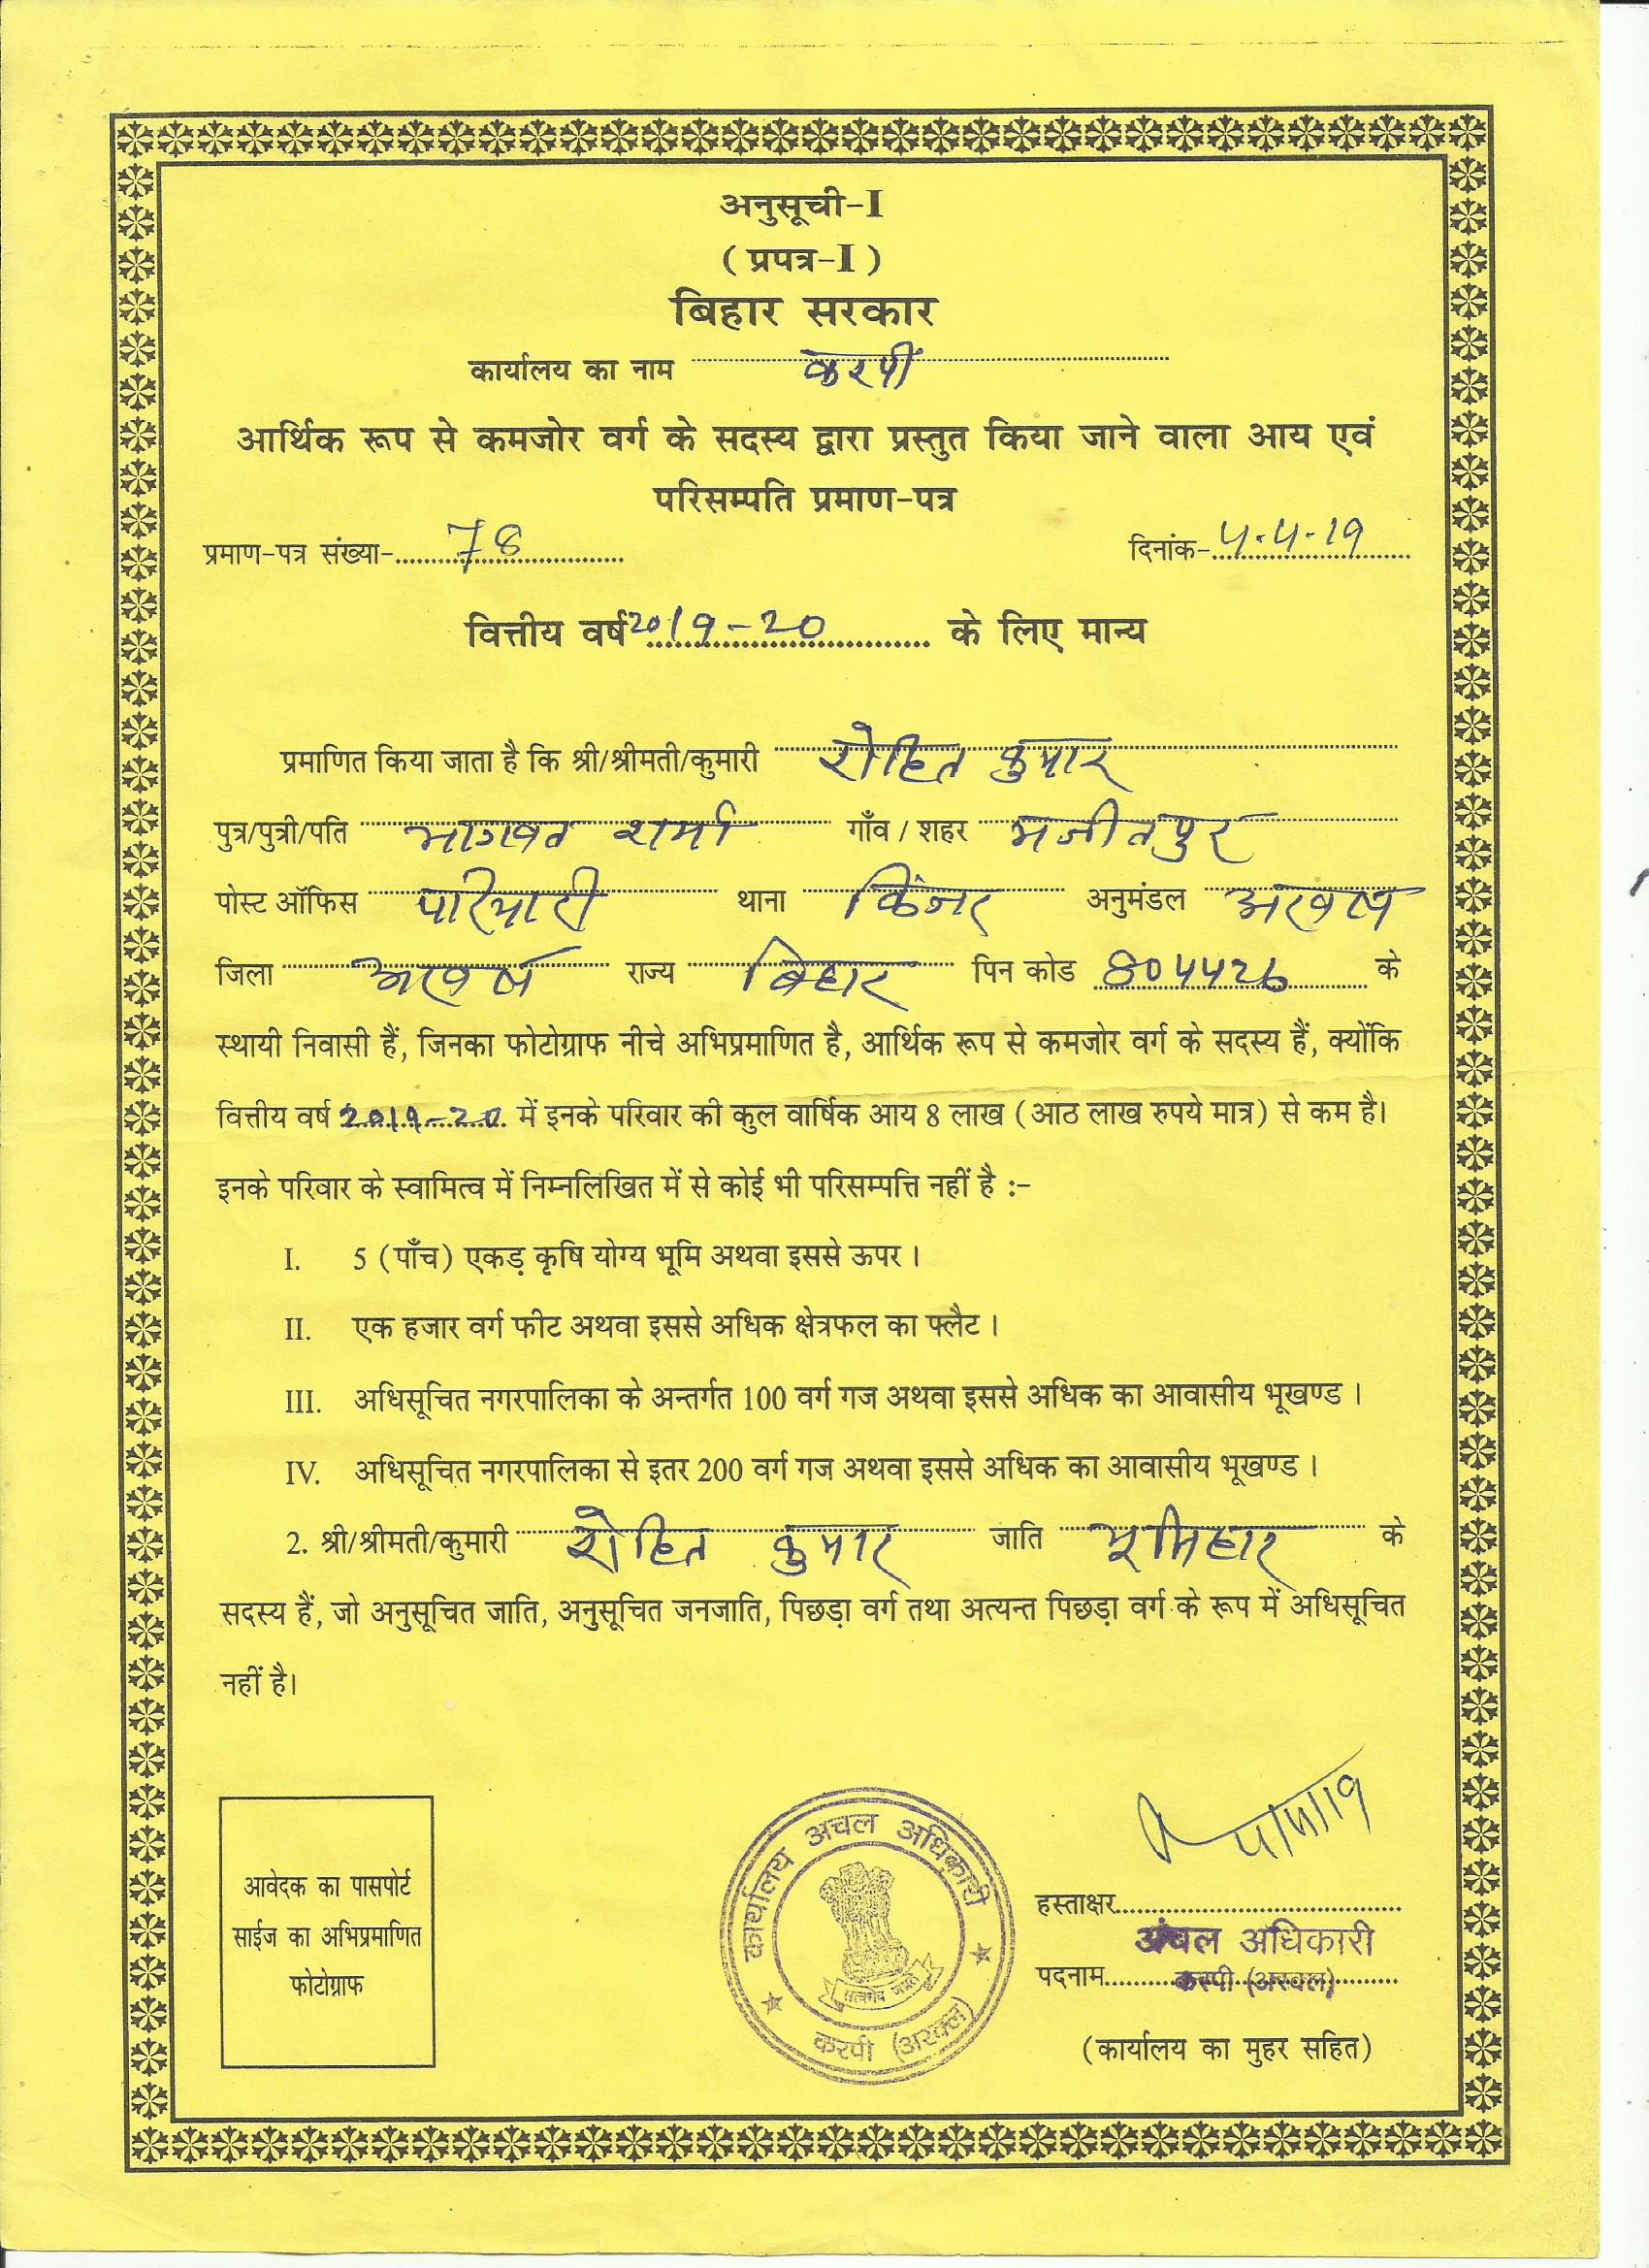 अनुसूची-I
( प्रपत्र-I )
बिहार सरकार
कार्यालय का नाम करपी
आर्थिक रूप से कमजोर वर्ग के सदस्य द्वारा प्रस्तुत किया जाने वाला आय एवं
परिसम्पति प्रमाण-पत्र
प्रमाण-पत्र संख्या- 78 दिनांक- 4.4.19
वित्तीय वर्ष 2019-20 के लिए मान्य
प्रमाणित किया जाता है कि श्री/श्रीमती/कुमारी रोहित कुमार
पुत्र/पुत्री/पति भागवत शर्मा गाँव / शहर मजीतपुर
पोस्ट ऑफिस थाना किंजर अनुमंडल अरवल
जिला अरवल राज्य बिहार पिन कोड 804426 के
स्थायी निवासी हैं, जिनका फोटोग्राफ नीचे अभिप्रमाणित है, आर्थिक रूप से कमजोर वर्ग के सदस्य हैं, क्योंकि
वित्तीय वर्ष 2019-20 में इनके परिवार की कुल वार्षिक आय 8 लाख (आठ लाख रुपये मात्र) से कम है।
इनके परिवार के स्वामित्व में निम्नलिखित में से कोई भी परिसम्पत्ति नहीं है :-
I. 5 (पाँच) एकड़ कृषि योग्य भूमि अथवा इससे ऊपर ।
II. एक हजार वर्ग फीट अथवा इससे अधिक क्षेत्रफल का फ्लैट ।
III. अधिसूचित नगरपालिका के अन्तर्गत 100 वर्ग गज अथवा इससे अधिक का आवासीय भूखण्ड ।
IV. अधिसूचित नगरपालिका से इतर 200 वर्ग गज अथवा इससे अधिक का आवासीय भूखण्ड ।
2. श्री/श्रीमती/कुमारी रोहित कुमार जाति भूमिहार के
सदस्य हैं, जो अनुसूचित जाति, अनुसूचित जनजाति, पिछड़ा वर्ग तथा अत्यन्त पिछड़ा वर्ग के रूप में अधिसूचित
नहीं है।
आवेदक का पासपोर्ट
साईज का अभिप्रमाणित
फोटोग्राफ
कार्यालय अचल अधिकारी
सत्यमेव जयते
करपी (अरवल)
हस्ताक्षर
अंचल अधिकारी
पदनाम करपी (अरवल)
(कार्यालय का मुहर सहित)